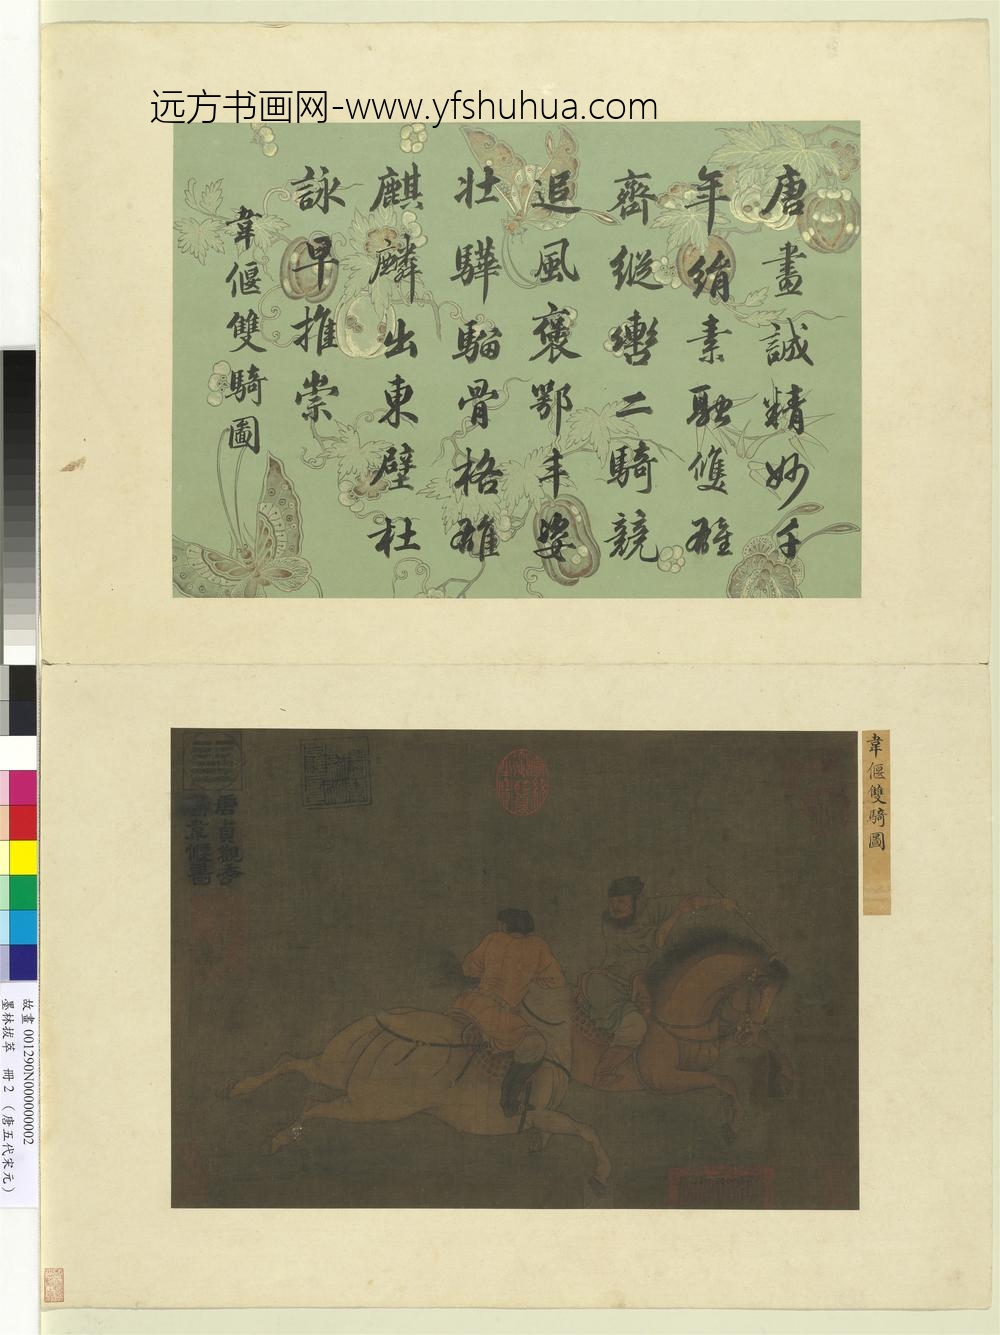 远方书画网-www.yfshuhua.com
唐畫誠精妙千
年絹素融雙雄
齊縱轡二騎競
追風褒鄂丰姿
壯驊騮骨格雄
麒麟出東壁杜
詠早推崇
韋偃雙騎圖
韋偃雙騎圖
故畫 001290N000000002
墨林拔萃 冊 2 (唐五代宋元)